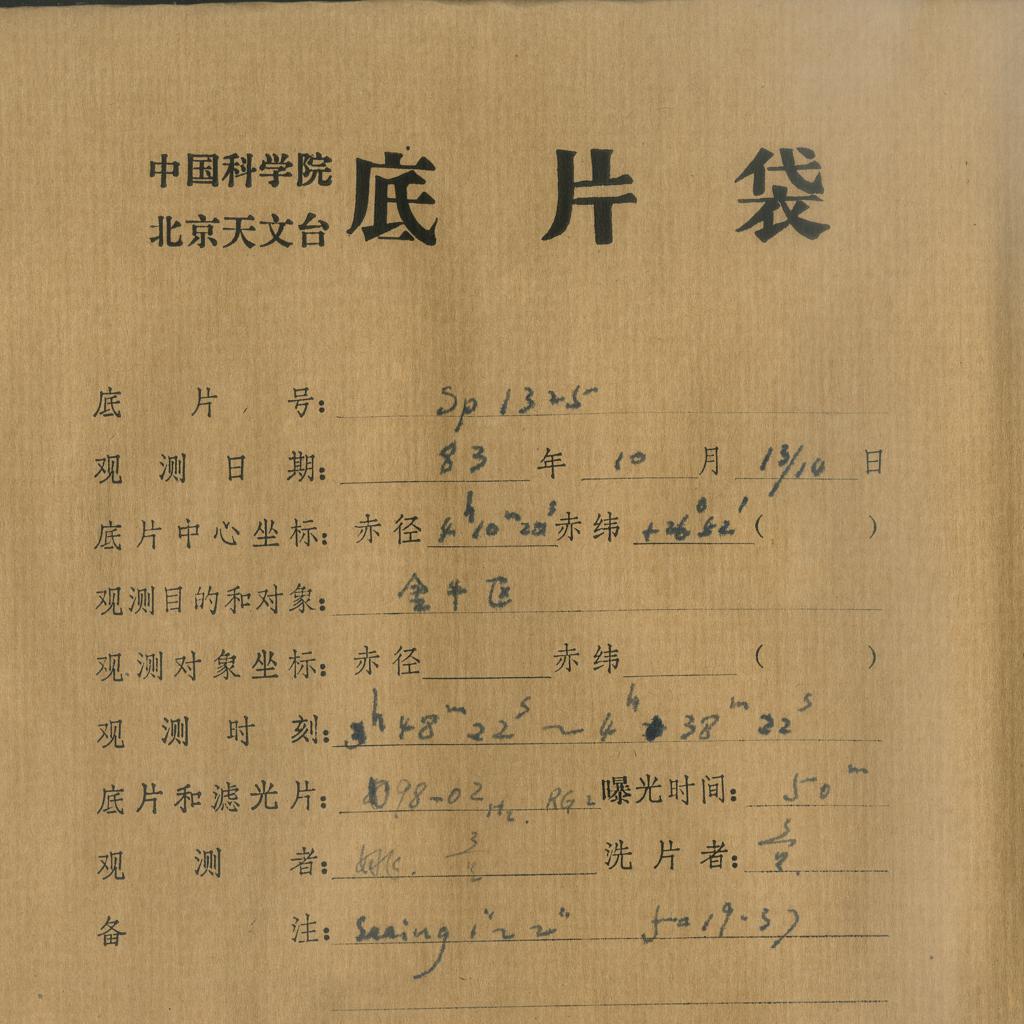 中国科学院
北京天文台 底片袋
底片号: Sp 1325
观测日期: 83 年 10 月 13/14 日
底片中心坐标: 赤径 4h10m20s 赤纬 +26°52′ ( )
观测目的和对象: 金牛区
观测对象坐标: 赤径 赤纬 ( )
观测时刻: 3h48m22s ~ 4h38m22s
底片和滤光片: 098-02 H2. RG2 曝光时间: 50m
观测者: 洗片者:
备注: Seeing 1"~2" 19.37